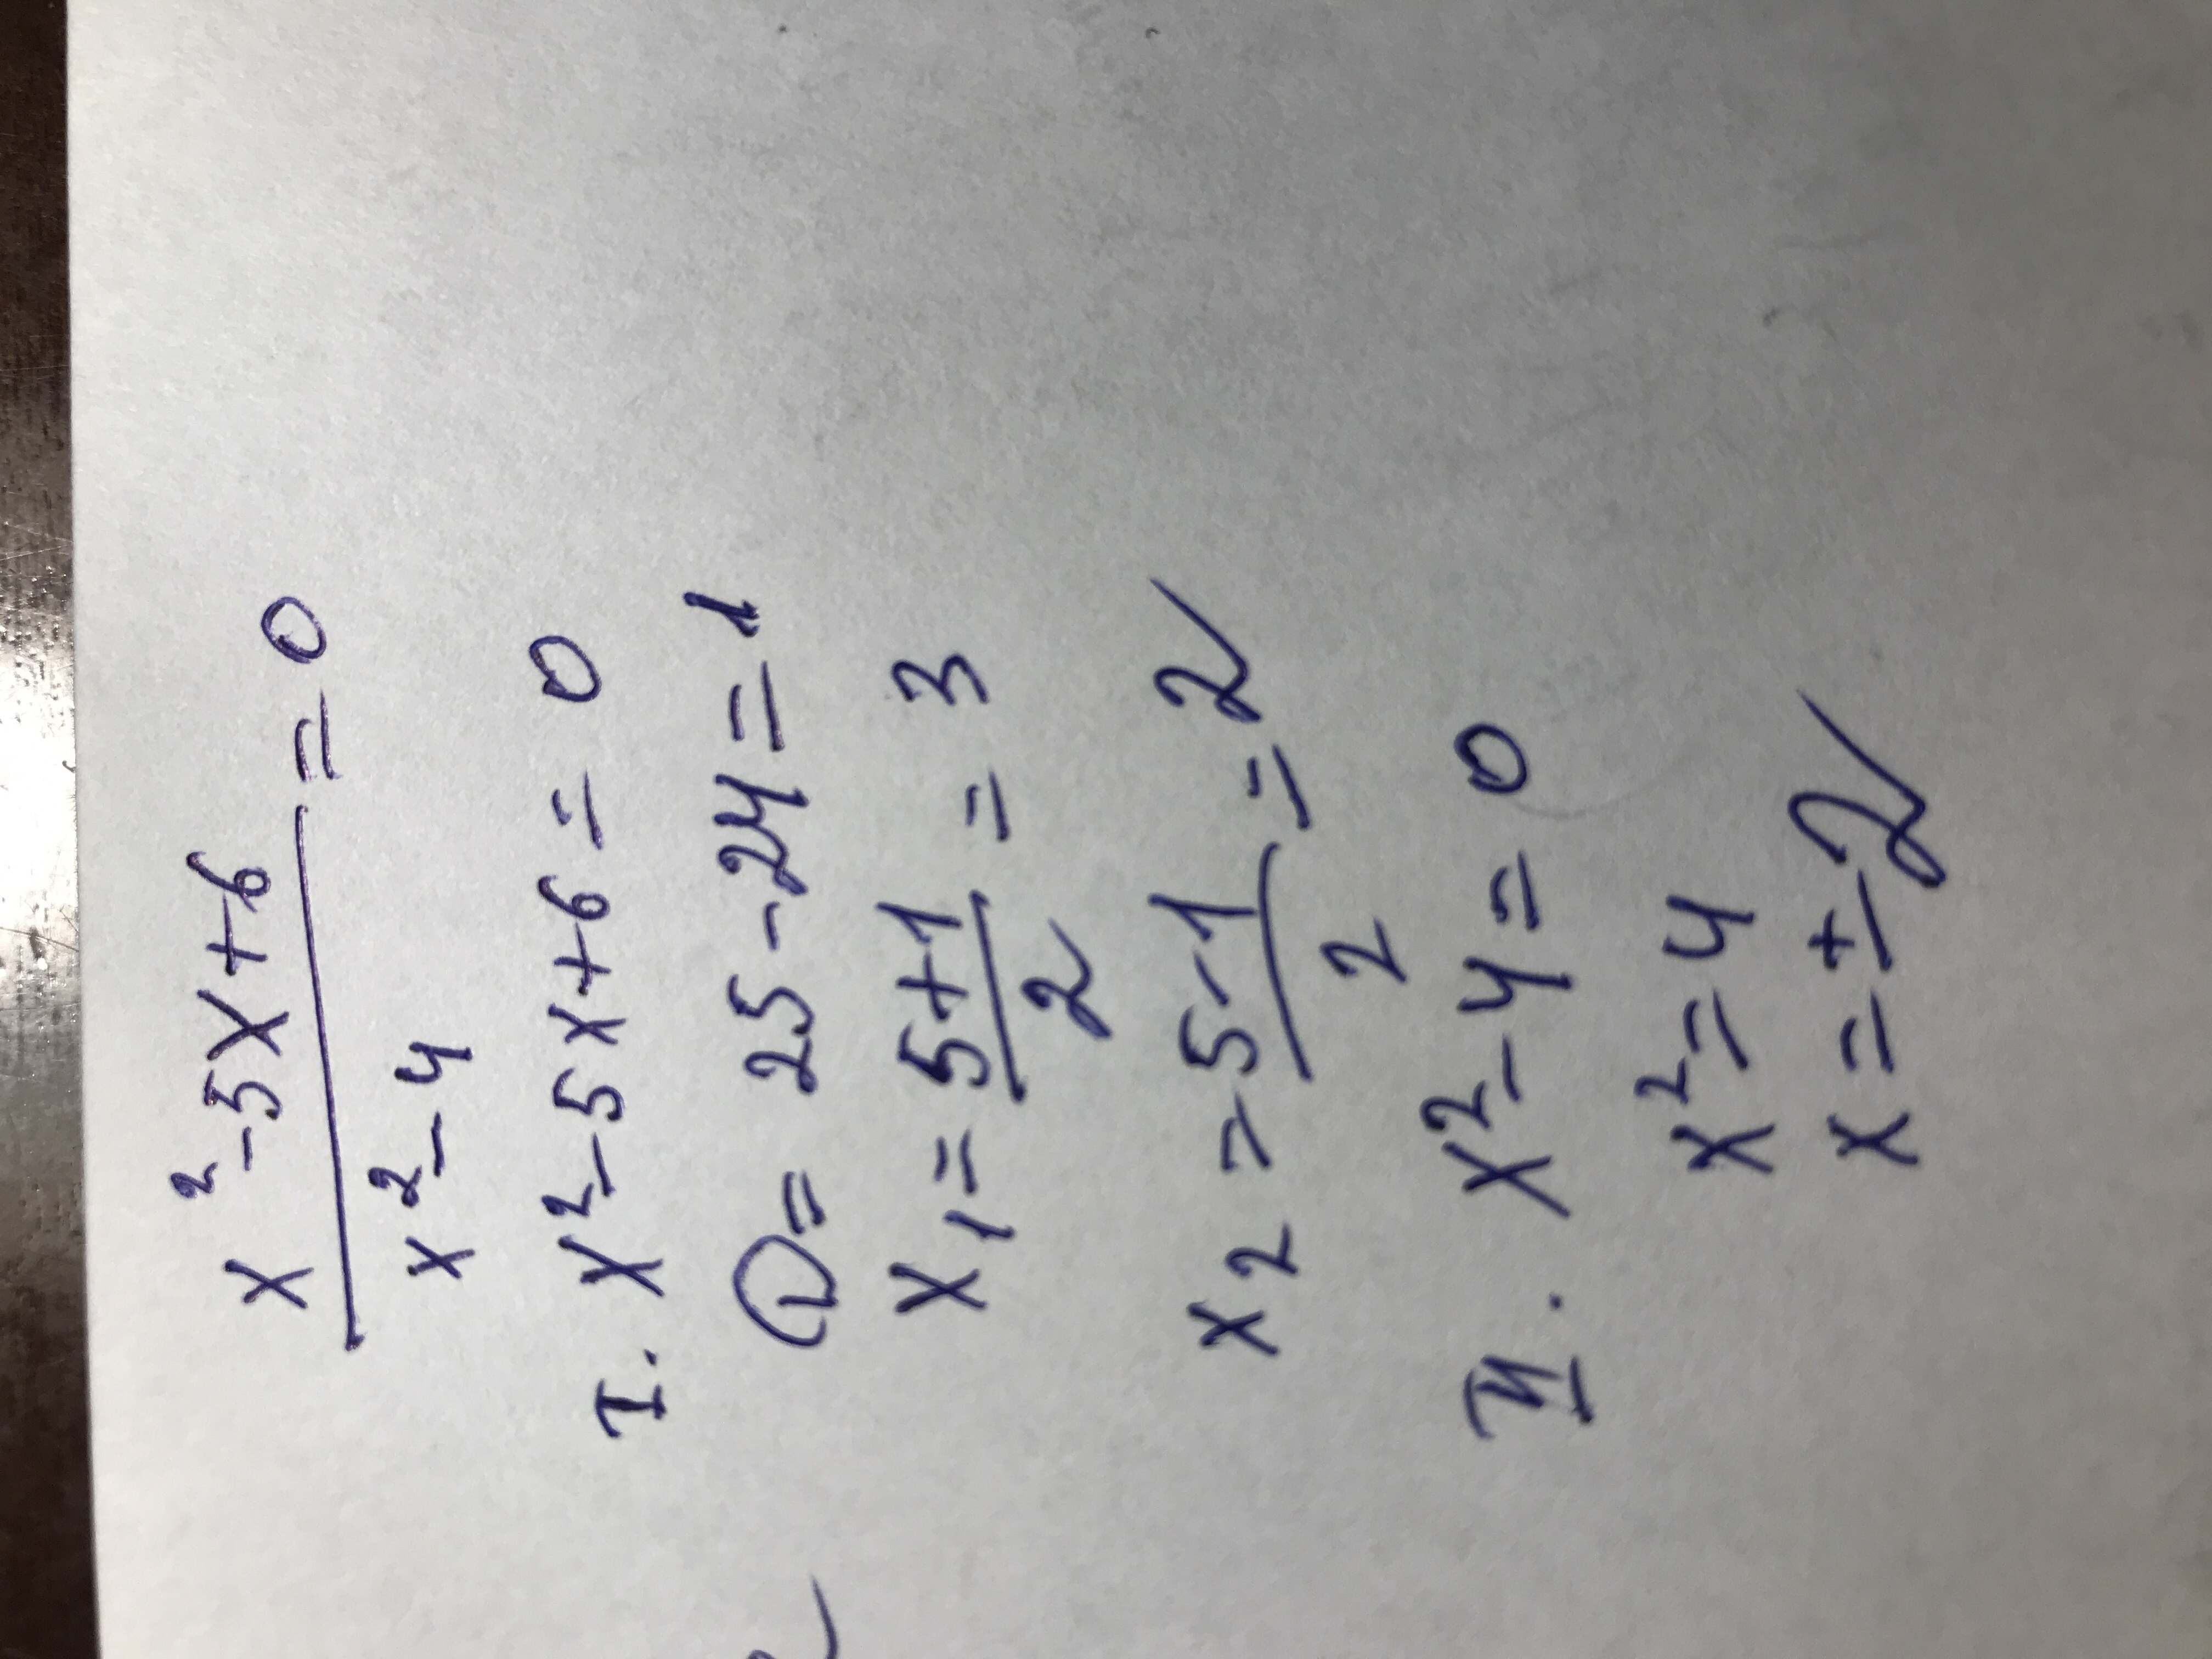 x² - 5x + 6 / x² - 4 = 0
I. x² - 5x + 6 = 0
D = 25 - 24 = 1
x₁ = 5 + 1 / 2 = 3
x₂ = 5 - 1 / 2 = 2
II. x² - 4 = 0
x² = 4
x = ± 2